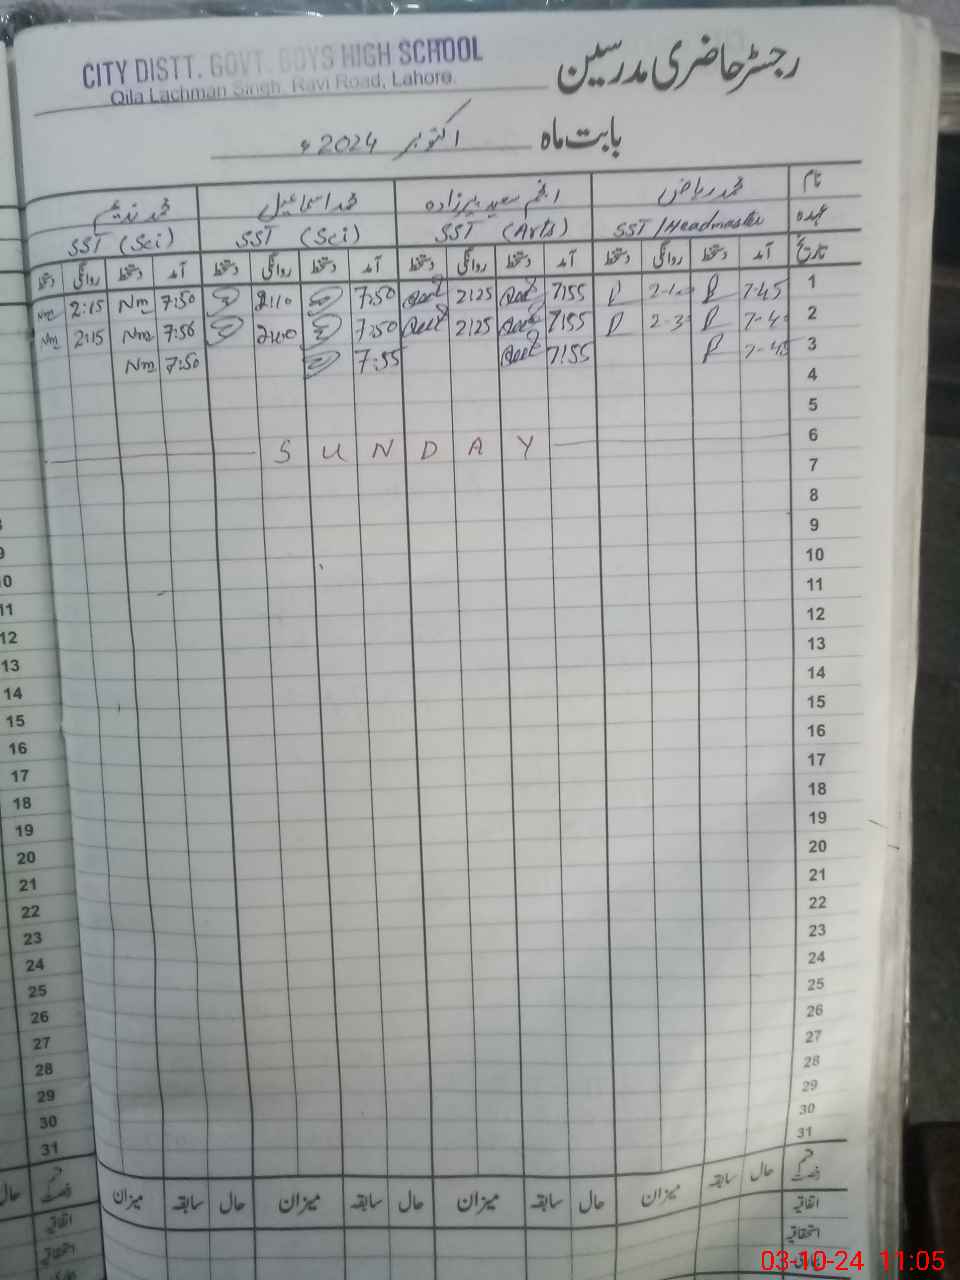 CITY DISTT. GOVT. BOYS HIGH SCHOOL
Qila Lachman Singh, Ravi Road, Lahore.
رجسٹر حاضری مدرسین
بابت ماہ اکتوبر 2024ء
نام محمد ریاض انجم سعید پیرزادہ محمد اسماعیل محمد ندیم
عہدہ SST/Headmaster SST (Arts) SST (Sci) SST (Sci)
تاریخ آمد دستخط روانگی دستخط آمد دستخط روانگی دستخط آمد دستخط روانگی دستخط آمد دستخط روانگی دستخط
1 7-45 7:55 2:25 7:50 2:10 7:50 Nm 2:15 Nm
2 7:55 2:25 7:50 7:56 Nm 2:15 Nm
3 7:55 7:55 7:50 Nm
4
5
6 SUNDAY
7
8
9
10
11
12
13
14
15
16
17
18
19
20
21
22
23
24
25
26
27
28
29
30
31
حال سابقہ میزان حال سابقہ میزان حال سابقہ میزان حال سابقہ میزان
اتفاقیہ
استحقاقیہ
9
10
11
12
13
14
15
16
17
18
19
20
21
22
23
24
25
26
27
28
29
30
31
حال
اتفاقیہ
استحقاقیہ
03-10-24 11:05